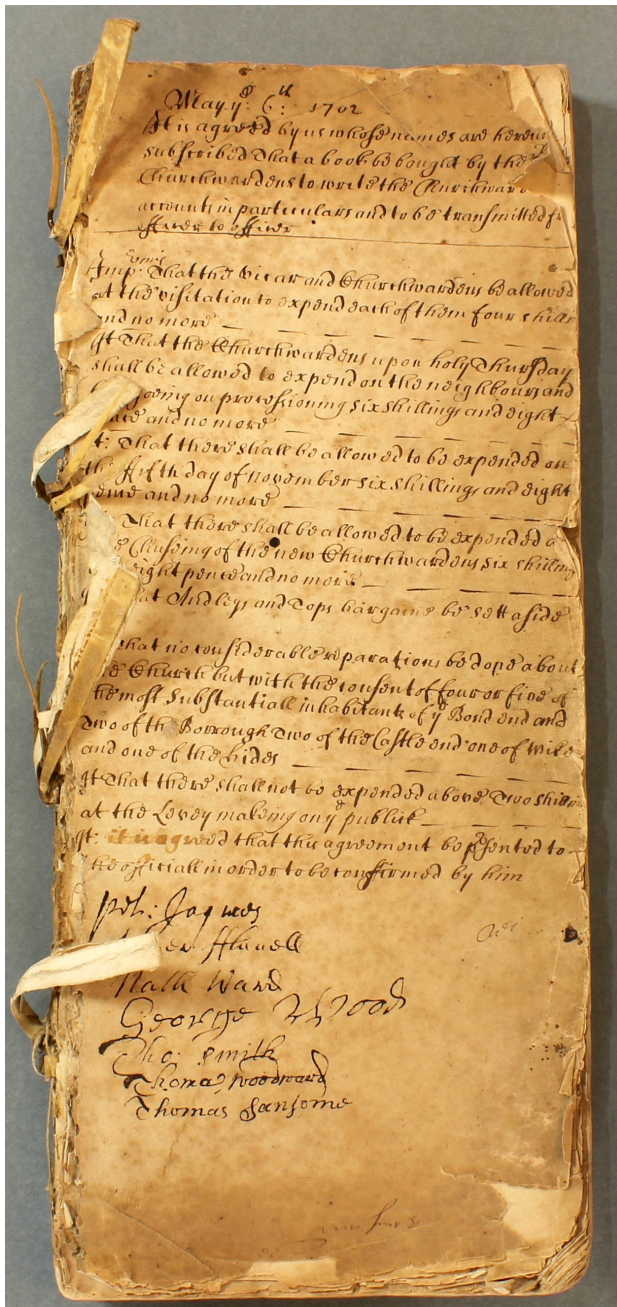 May ye: 6th: 1702
It is agreed by us whose names are hereun
subscribed That a book be bought by the
Churchwardens to write the Churchward
accounts in particulars and to be transmitted fr
officer to officer
Imp:rimis That the Vicar and Churchwardens be allowed
at the visitation to expend each of them four shill
and no more
It That the Churchwardens upon holy Thursday
shall be allowed to expend on the neighbours and
going on processioning six shillings and eight
and no more
t: That there shall be allowed to be expended on
the fifth day of november six shillings and eight
pence and no more
That there shall be allowed to be expended a
Chuseing of the new Churchwardens six shilling
eight pence and no more
at Audleys and Tops bargaine be sett aside
that no considerable reparations be done about
Church but with the consent of four or five of
the most Substantiall inhabitants of ye Bond end and
Two of the Borrough Two of the Castle end one of
and one of the
It That there shall not be expended above Two shillin
at the Levey making on ye publick
It: it is agreed that this agreement be psented to
the officiall in order to be confirmed by him
pet: Jaques
Nath Ward
George Wood
Tho: Smith
Thomas Woodward
Thomas Sansome